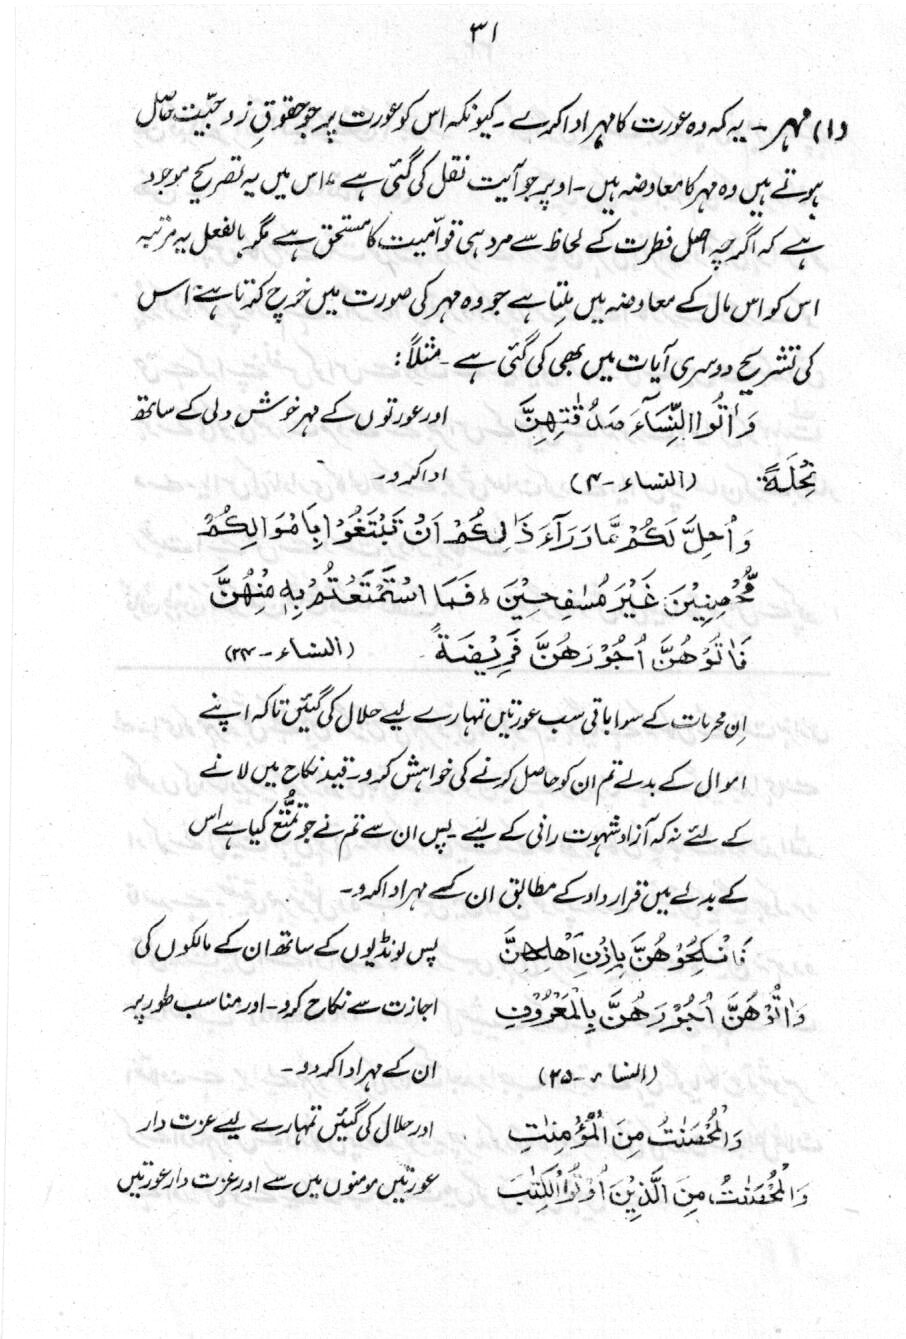 ۳۱
(۱) مہر ۔ یہ کہ وہ عورت کا مہر ادا کرے ۔ کیونکہ اس کو عورت پر جو حقوقِ زوجیّت حاصل
ہوتے ہیں وہ مہر کا معاوضہ ہیں ۔ اوپر جو آیت نقل کی گئی ہے ، اس میں یہ تصریح موجود
ہے کہ اگرچہ اصل فطرت کے لحاظ سے مرد ہی قوّامیت کا مستحق ہے مگر بالفعل یہ مرتبہ
اس کو اس مال کے معاوضہ میں ملتا ہے جو وہ مہر کی صورت میں خرچ کرتا ہے ، اس
کی تشریح دوسری آیات میں بھی کی گئی ہے ۔ مثلاً :
وَاٰتُوا النِّسَآءَ صَدُقٰتِهِنَّ اور عورتوں کے مہر خوش دلی کے ساتھ
نِحْلَةً (النساء ۔ ۴) ادا کرو ۔
وَاُحِلَّ لَكُمْ مَّا وَرَآءَ ذٰلِكُمْ اَنْ تَبْتَغُوْا بِاَمْوَالِكُمْ
مُّحْصِنِيْنَ غَيْرَ مُسٰفِحِيْنَ ، فَمَا اسْتَمْتَعْتُمْ بِهٖ مِنْهُنَّ
فَاٰتُوْهُنَّ اُجُوْرَهُنَّ فَرِيْضَةً (النساء ۔ ۲۴)
اِن محرمات کے سوا باقی سب عورتیں تمہارے لیے حلال کی گئیں تاکہ اپنے
اموال کے بدلے تم ان کو حاصل کرنے کی خواہش کرو ۔ قید نکاح میں لانے
کے لئے نہ کہ آزاد شہوت رانی کے لیے ۔ پس ان سے تم نے جو تمتُّع کیا ہے اس
کے بدلے میں قرار داد کے مطابق ان کے مہر ادا کرو ۔
فَانْكِحُوْهُنَّ بِاِذْنِ اَهْلِهِنَّ پس لونڈیوں کے ساتھ ان کے مالکوں کی
وَاٰتُوْهُنَّ اُجُوْرَهُنَّ بِالْمَعْرُوْفِ اجازت سے نکاح کرو ۔ اور مناسب طور پر
(النساء ۔ ۲۵) ان کے مہر ادا کر دو ۔
وَالْمُحْصَنٰتُ مِنَ الْمُؤْمِنٰتِ اور حلال کی گئیں تمہارے لیے عزت دار
وَالْمُحْصَنٰتُ مِنَ الَّذِيْنَ اُوْتُوا الْكِتٰبَ عورتیں مومنوں میں سے اور عزت دار عورتیں